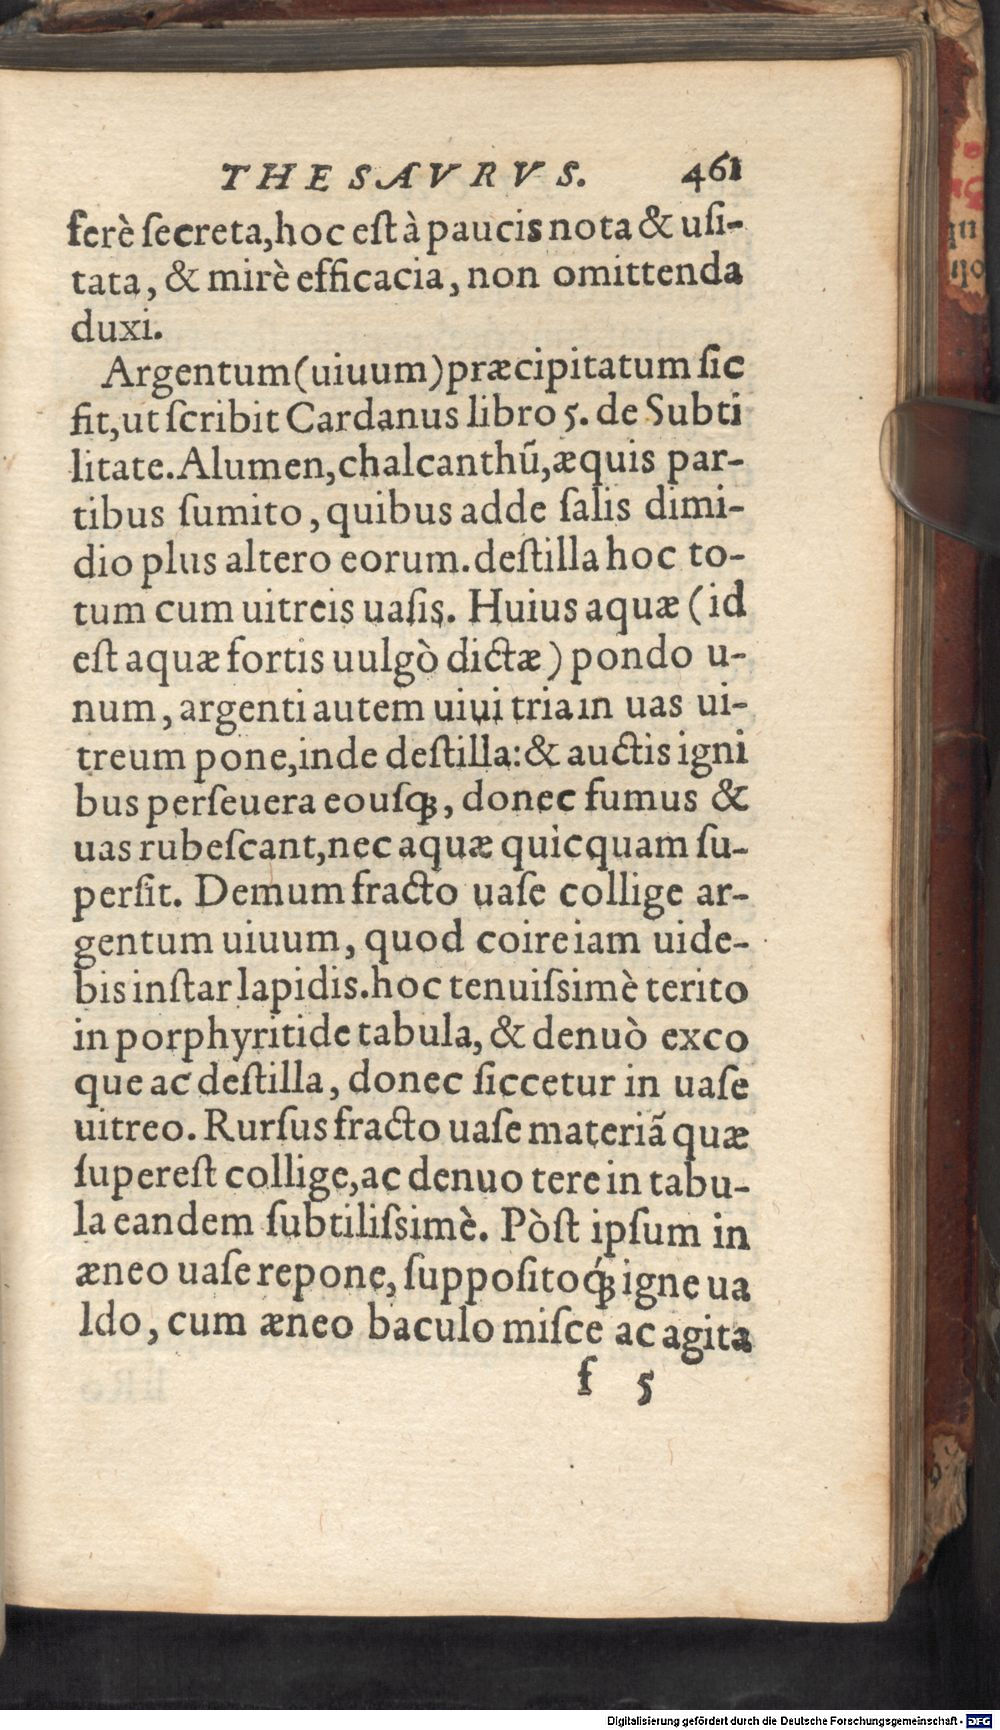 THESAVRVS. 461
ferè ſecreta,hoc eſt à paucis nota & uſi-
tata, & mirè efficacia, non omittenda
duxi.
Argentum (uiuum) præcipitatum ſic
fit,ut ſcribit Cardanus libro 5. de Subti
litate. Alumen, chalcanthũ, æquis par-
tibus ſumito, quibus adde ſalis dimi-
dio plus altero eorum. deſtilla hoc to-
tum cum uitreis uaſis. Huius aquæ (id
eſt aquæ fortis uulgò dictæ) pondo u-
num, argenti autem uiui tria in uas ui-
treum pone, inde deſtilla: & auctis igni
bus perſeuera eouſq́;, donec fumus &
uas rubeſcant, nec aquæ quicquam ſu-
perſit. Demum fracto uaſe collige ar-
gentum uiuum, quod coire iam uide-
bis inſtar lapidis. hoc tenuiſsimè terito
in porphyritide tabula, & denuò exco
que ac deſtilla, donec ſiccetur in uaſe
uitreo. Rurſus fracto uaſe materiã quæ
ſupereſt collige, ac denuo tere in tabu-
la eandem ſubtiliſsimè. Pòſt ipſum in
æneo uaſe repone, ſuppoſitoq́; igne ua
ldo, cum æneo baculo miſce ac agita
f 5
Digitalisierung gefördert durch die Deutsche Forschungsgemeinschaft - DFG